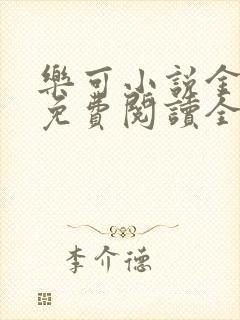 樂可小說全
免費閱讀全
李介德